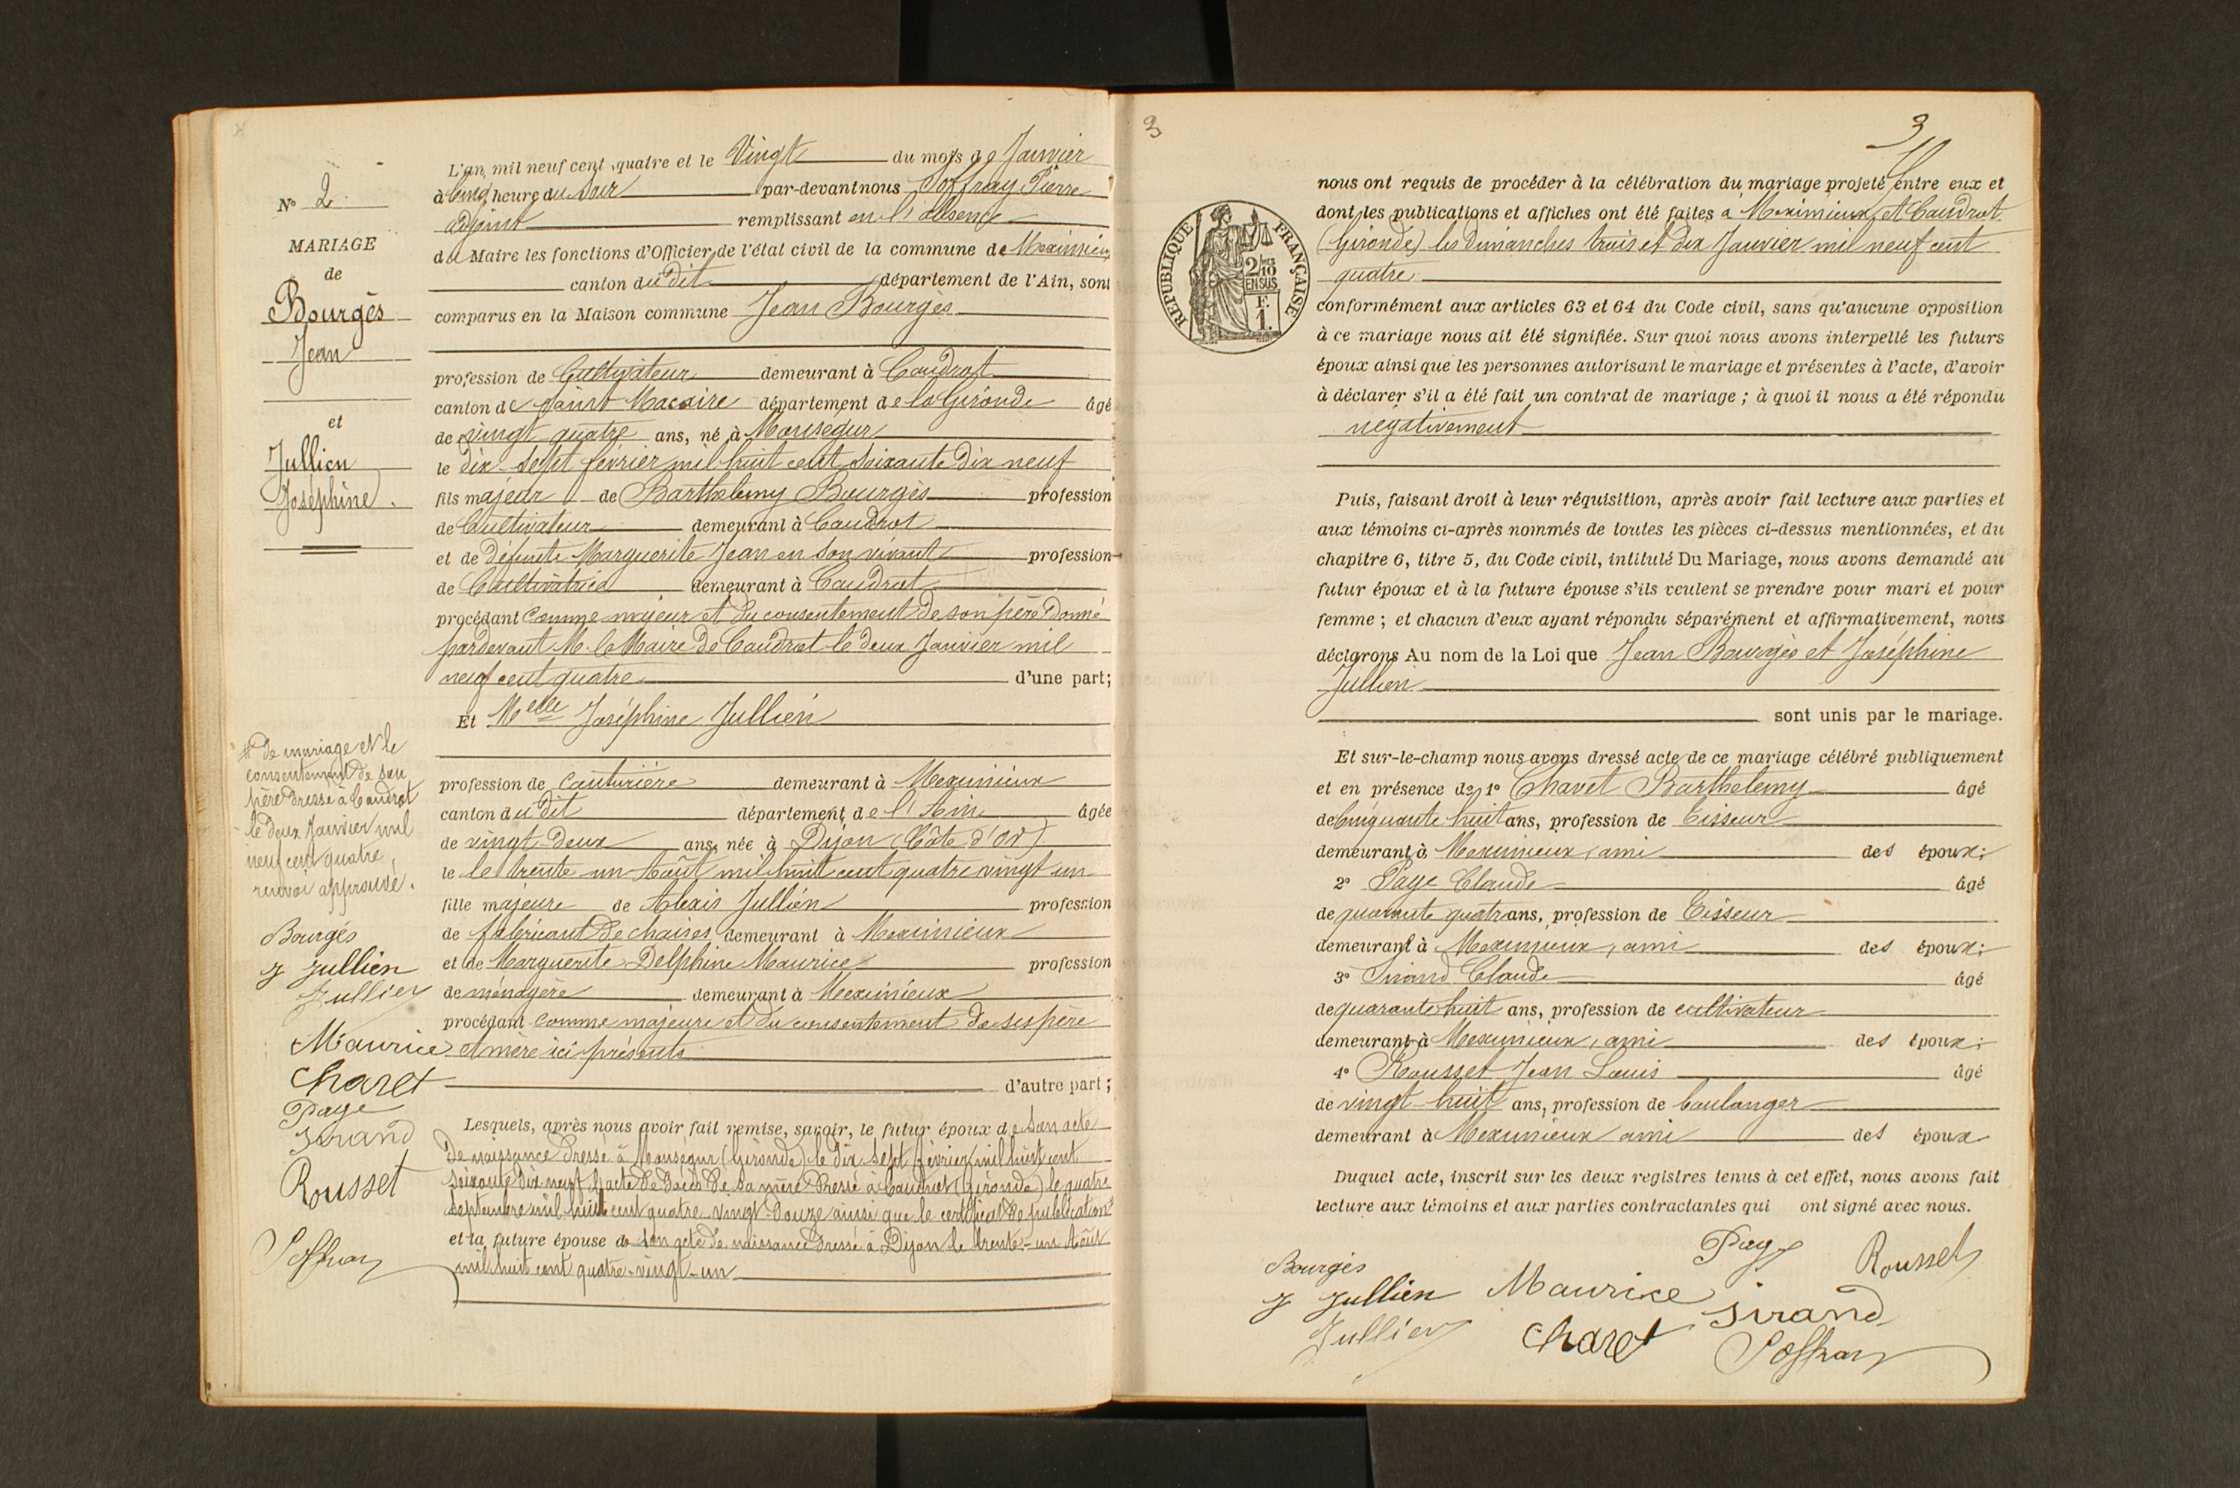 N° 2
MARIAGE
de
Bourgès
Jean
et
Jullien
Joséphine.
L'an mil neuf cent quatre et le Vingt du mois de Janvier
à Cinq heure du Soir par-devant nous Joffray Pierre
adjoint remplissant en l'absence
du Maire les fonctions d'Officier de l'état civil de la commune de Meximieux
canton du dit département de l'Ain, sont
comparus en la Maison commune Jean Bourgès
profession de Cultivateur demeurant à Caudrot
canton de Saint Macaire département de la Gironde âgé
de vingt quatre ans, né à Monségur
le dix-sept février mil huit cent soixante dix neuf
fils majeur de Barthelemy Bourgès profession
de Cultivateur demeurant à Caudrot
et de défunte Marguerite Jean en son vivant profession
de Cultivatrice demeurant à Caudrot
procédant comme majeur et du consentement de son père donné
pardevant M. le Maire de Caudrot le deux Janvier mil
neuf cent quatre d'une part;
Et Melle Joséphine Jullien
profession de couturière demeurant à Meximieux
canton du dit département de l'Ain âgée
de vingt-deux ans, née à Dijon (Côte d'Or)
le le trente un Août mil huit cent quatre vingt un
fille majeure de Alexis Jullien profession
de fabricant de chaises demeurant à Meximieux
et de Marguerite Delphine Maurice profession
de ménagère demeurant à Meximieux
procédant comme majeure et du consentement de ses père
et mère ici présents
d'autre part;
Lesquels, après nous avoir fait remise, savoir, le futur époux de Son acte
de naissance dressé à Monségur (Gironde) le dix sept février mil huit cent
soixante dix neuf, l'acte de décès de sa mère dressé à Caudrot (Gironde) le quatre
septembre mil huit cent quatre vingt douze ainsi que le certificat de publication #
et la future épouse de son acte de naissance dressé à Dijon le trente-un Août
mil huit cent quatre-vingt-un
# de mariage et le
consentement de son
père dressé à Caudrot
le deux Janvier mil
neuf cent quatre,
renvoi approuvé.
Bourgès
J Jullien
Jullien
Maurice
Chavet
Page
Girand
Rousset
Joffray
3
3
nous ont requis de procéder à la célébration du mariage projeté entre eux et
dont les publications et affiches ont été faites à Meximieux et Caudrot
(Gironde) les dimanches trois et dix Janvier mil neuf cent
quatre
REPUBLIQUE FRANÇAISE
2/10
EN SUS
F.
1.
conformément aux articles 63 et 64 du Code civil, sans qu'aucune opposition
à ce mariage nous ait été signifiée. Sur quoi nous avons interpellé les futurs
époux ainsi que les personnes autorisant le mariage et présentes à l'acte, d'avoir
à déclarer s'il a été fait un contrat de mariage; à quoi il nous a été répondu
négativement
Puis, faisant droit à leur réquisition, après avoir fait lecture aux parties et
aux témoins ci-après nommés de toutes les pièces ci-dessus mentionnées, et du
chapitre 6, titre 5, du Code civil, intitulé Du Mariage, nous avons demandé au
futur époux et à la future épouse s'ils veulent se prendre pour mari et pour
femme; et chacun d'eux ayant répondu séparément et affirmativement, nous
déclarons Au nom de la Loi que Jean Bourgès et Joséphine
Jullien
sont unis par le mariage.
Et sur-le-champ nous avons dressé acte de ce mariage célébré publiquement
et en présence de 1° Chavet Barthelemy âgé
de Cinquante huit ans, profession de Tisseur
demeurant à Meximieux, ami des époux;
2° Page Claude âgé
de quarante quatre ans, profession de Tisseur
demeurant à Meximieux, ami des époux;
3° Girand Claude âgé
de quarante huit ans, profession de cultivateur
demeurant à Meximieux, ami des époux;
4° Rousset Jean Louis âgé
de vingt-huit ans, profession de boulanger
demeurant à Meximieux ami des époux
Duquel acte, inscrit sur les deux registres tenus à cet effet, nous avons fait
lecture aux témoins et aux parties contractantes qui ont signé avec nous.
Bourgès
J Jullien
Jullien
Maurice
Chavet
Page
Girand
Rousset
Joffray